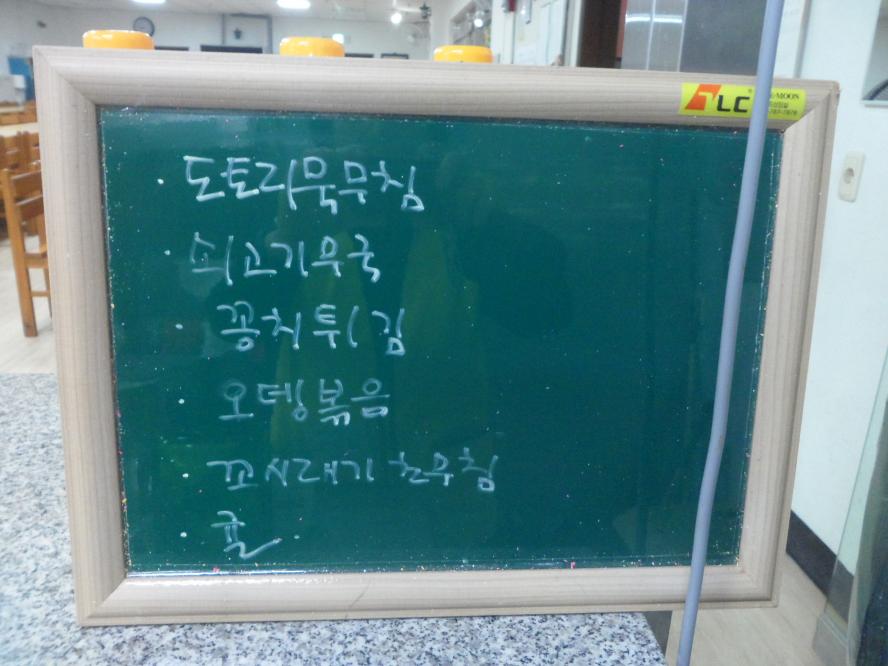 TLC
MOON
· 도토리묵무침
· 쇠고기무국
· 꽁치튀김
· 오뎅볶음
· 꼬시래기초무침
· 귤